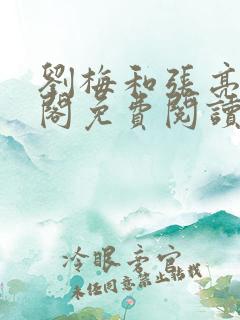 劉梅和張亮
閣免費閱讀
冷眼旁官
未经同意禁止转载